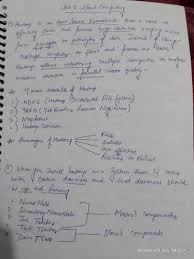 Unit-5 Cloud Computing
Hadoop is an Open Source Framework that is used to
efficiently store and process large datasets ranging in size
from gigabytes to petabytes of data. Instead of using
one large computer to store and process the data,
Hadoop allows clustering multiple computers to analyze
massive datasets in parallel more quickly.
4 main Modules of Hadoop
1) HDFS (Hadoop Distributed File System)
2) YARN (Yet Another Resource Negotiator)
3) MapReduce
4) Hadoop Common
Advantages of Hadoop
Fast
Scalable
Cost effective
Resilient to Failure
When you install hadoop in a System there
with certain daemons and
1. NameNode
2. Secondary NameNode
3. Job Tracker
4. Task Tracker
5. Data Node
Master Components
Slave Components